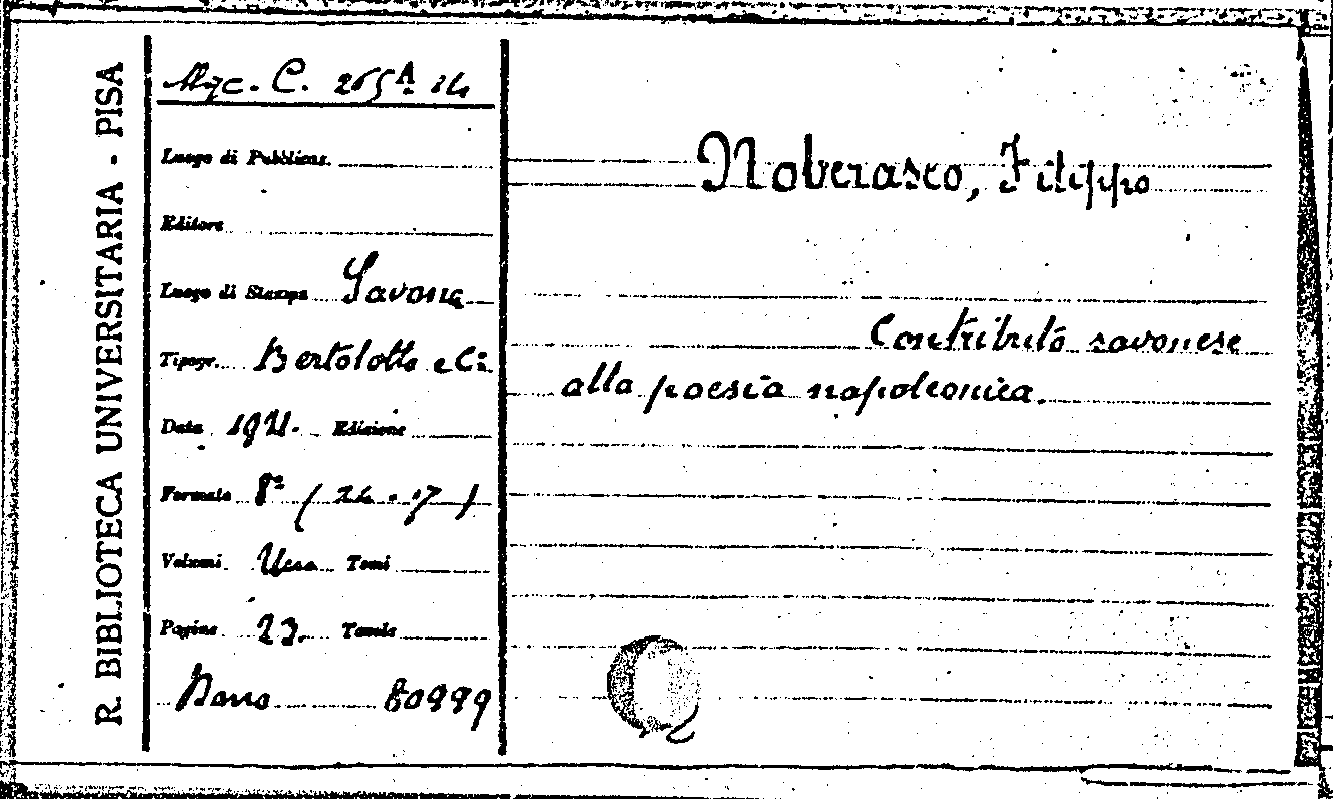 R. BIBLIOTECA UNIVERSITARIA - PISA
Misc. C. 265 A. 14
Luogo di Pubblicaz.
Editore
Luogo di Stampa Savona
Tipogr. Bertolotto e Ci.
Data 1921. Edizione
Formato 8º ( 24 . 17 )
Volumi Uno Tomi
Pagine 23. Tavole
Dono 80999
Noberasco, Filippo
Contributo savonese
alla poesia napoleonica.